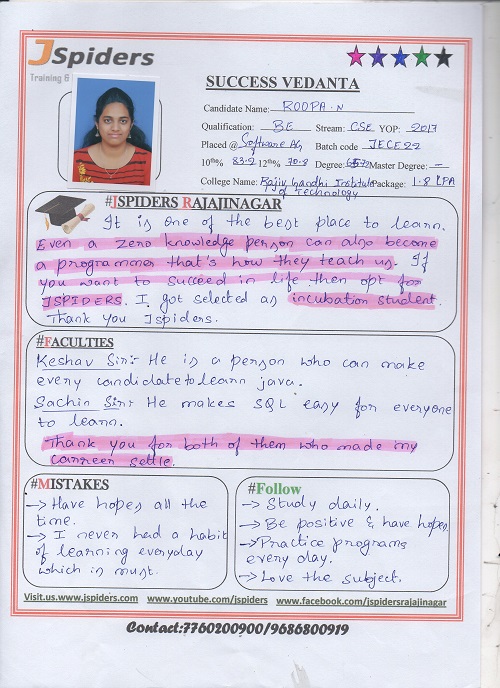 JSpiders
Training &
SUCCESS VEDANTA
Candidate Name: ROOPA.N
Qualification: BE Stream: CSE YOP: 2017
Placed @ Software AG Batch code JECE22
10th% 83.2 12th% 70.8 Degree: Master Degree: —
College Name: Rajiv Gandhi Institute of Technology Package: 1.8 LPA
#JSPIDERS RAJAJINAGAR
It is one of the best place to learn.
Even a zero knowledge person can also become
a programmer that's how they teach us. If
you want to succeed in life then opt for
JSPIDERS. I got selected as incubation student.
Thank you Jspiders.
#FACULTIES
Keshav Sir:- He is a person who can make
every candidate to learn java.
Sachin Sir:- He makes SQL easy for everyone
to learn.
Thank you for both of them who made my
carreer settle.
#MISTAKES
→ Have hopes all the
time.
→ I never had a habit
of learning everyday
which is must.
#Follow
→ Study daily.
→ Be positive & have hopes
→ Practice programs
every day.
→ Love the subject.
Visit.us.www.jspiders.com www.youtube.com/jspiders www.facebook.com/jspidersrajajinagar
Contact:7760200900/9686800919